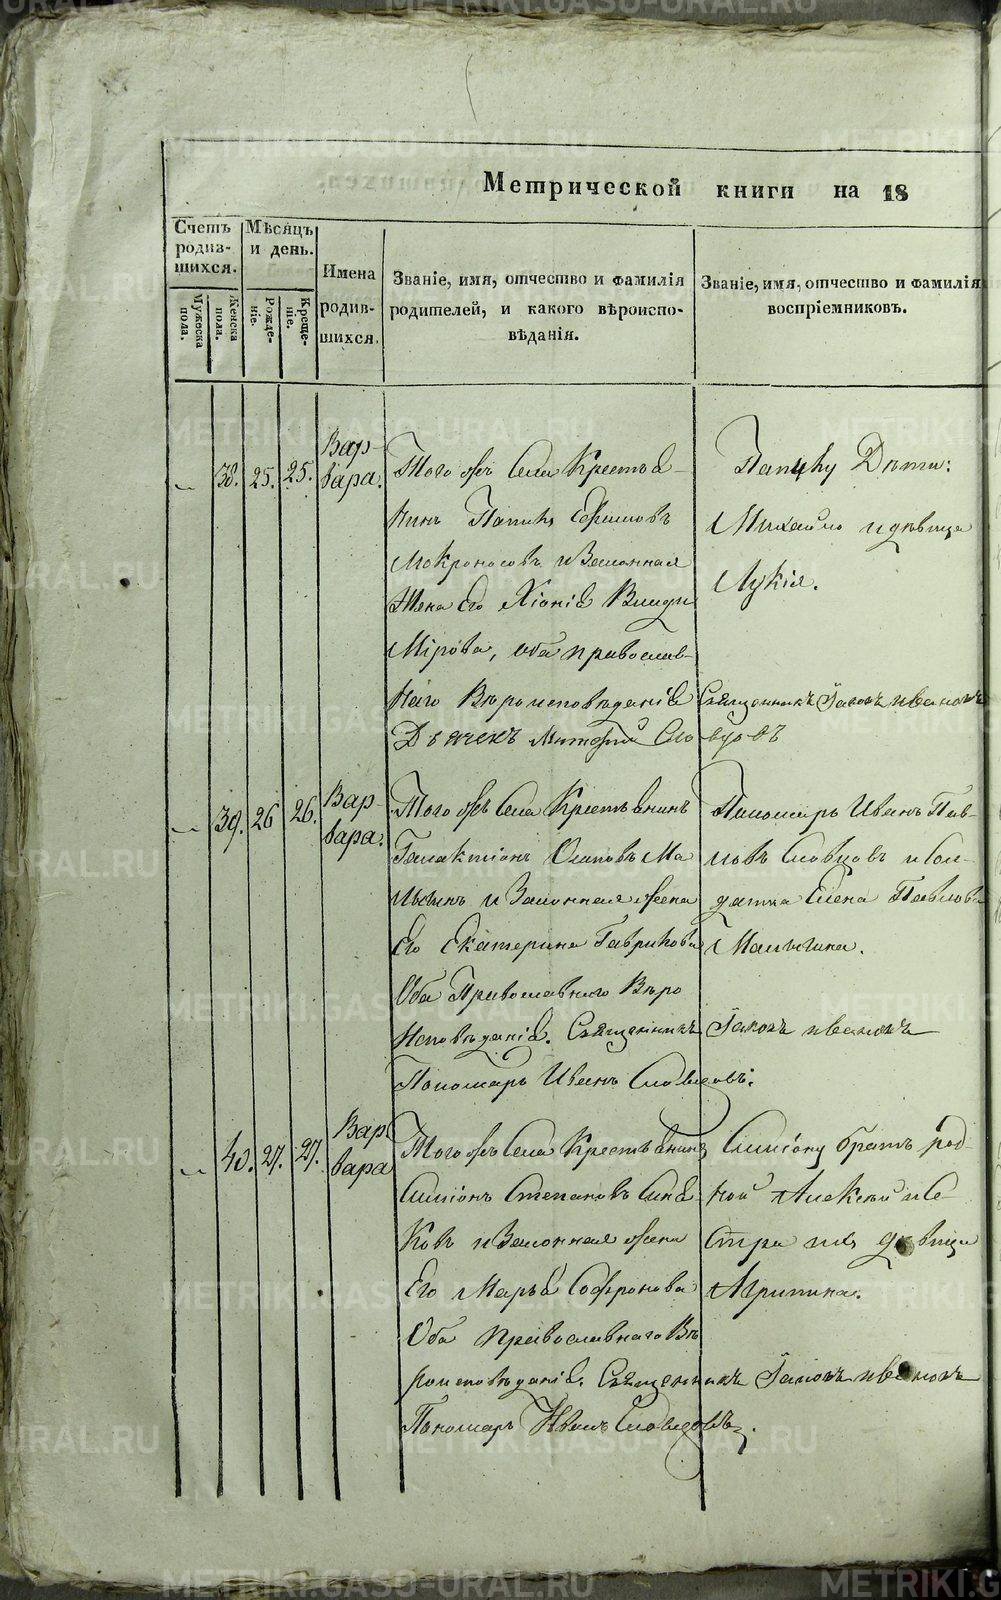 Метрической книги на 18
Счетъ родив-шихся.
Мужеска пола.
Женска пола.
Мѣсяцъ и день.
Рожде-ніе.
Креще-ніе.
Имена родив-шихся.
Званіе, имя, отчество и фамилія
родителей, и какого вѣроиспо-
вѣданія.
Званіе, имя, отчество и фамилія
воспріемниковъ.
38. 25. 25.
Вар-
вара.
Того жъ Села Крестья-
нинъ
Мокроносовъ и Законная
Жена Его Хіонія Влади
Мірова, оба православ-
наго Вѣроисповѣданія
Дьячекъ Словцовъ
Дѣти:
Михайло и дѣвица
Лукія.
Священникъ Іаковъ
39. 26 26.
Вар-
вара.
Того жъ Села Крестьянинъ
Галактіонъ Осиповъ Ма
и Законная жена
Его Екатерина Гаврилова
Оба Православнаго Вѣро
Исповѣданія. Священникъ Іаковъ
Пономарь Иванъ Словцовъ.
Пономарь Иванъ Пав-
ловъ Словцовъ и Сол-
датка Елена Павлова
40. 27. 27.
Вар
вара
Того жъ Села Крестьянинъ
Симіонъ Степановъ
и Законная жена
Его Марья Софронова
Оба православнаго Вѣ
роисповѣданія. Священникъ Іаковъ
Пономарь Иванъ Словцовъ.
Симіону братъ род-
ной Алексѣй и Се-
стра ихъ дѣвица
Агрипина.
METRIKI.GASO-URAL.RU